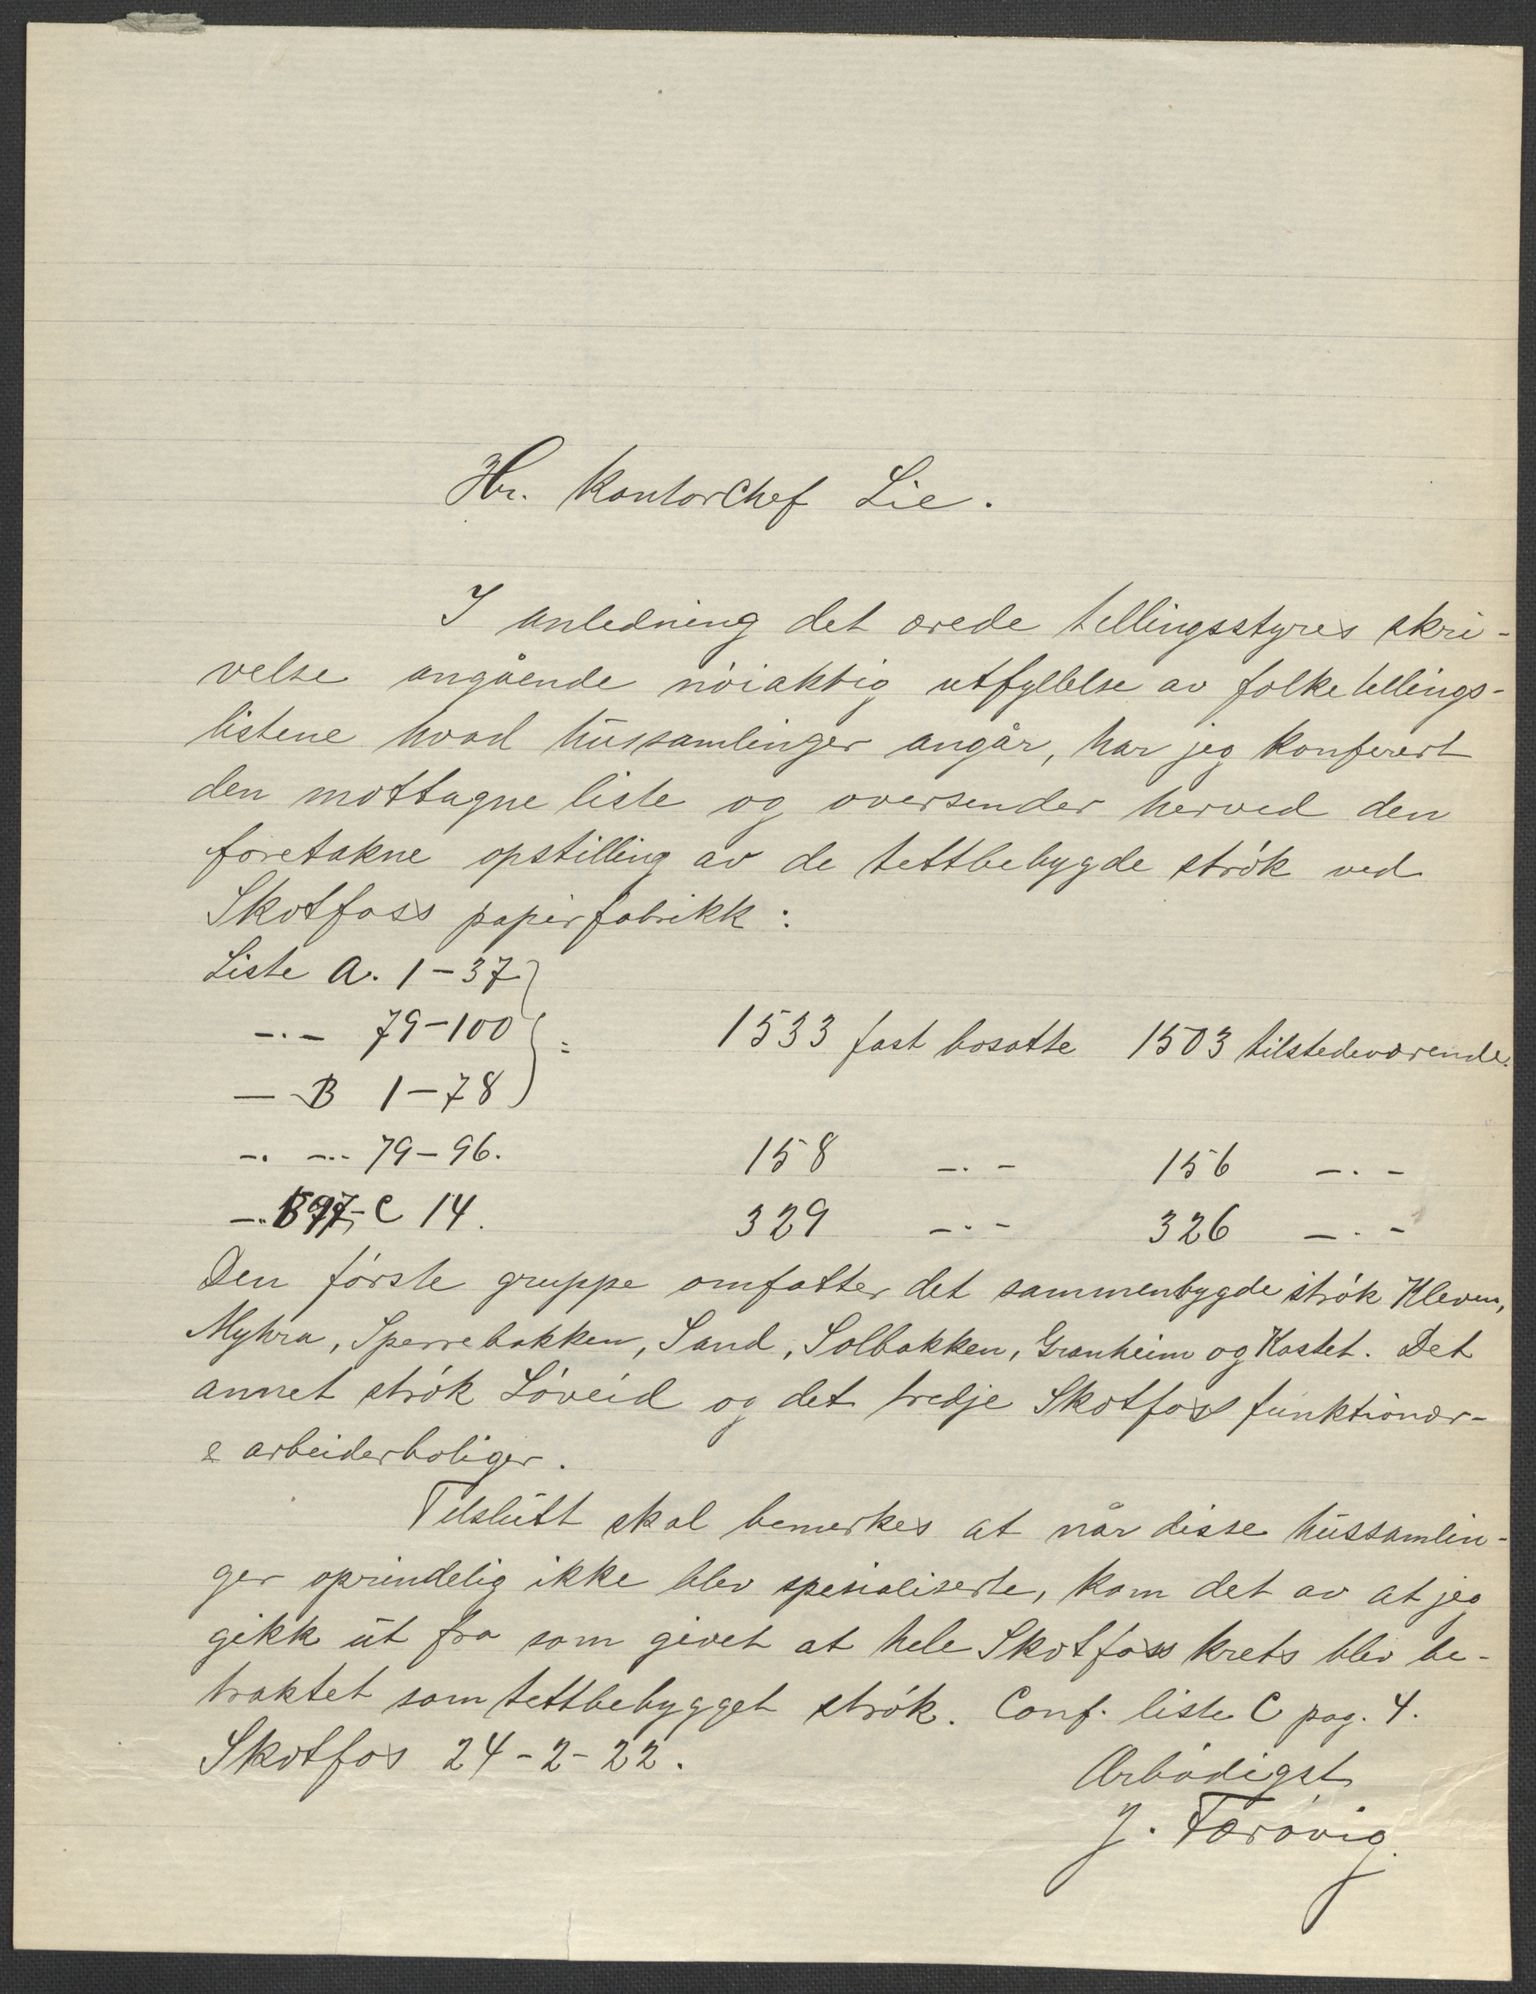 Hr. Kontorchef Lie.
I anledning det ærede tellingsstyres skri-
velse angående nöiaktig utfyllelse av folketellings-
listene hvad hussamlinger angår, har jeg konferert
den mottagne liste og oversender herved den
foretakne opstilling av de tettbebygde strök ved
Skotfoss papirfabrikk:
Liste A. 1-37
-.- 79-100 } = 1533 fast bosatte 1503 tilstedeværende.
- B 1-78
-. -.- 79-96. 158 -.- 156 -.-
-. B 97-C 14. 329 -.- 326 -.-
Den förste gruppe omfatter det sammenbygde strök Kleven,
Myhra, Sperrebakken, Sand, Solbakken, Granheim og Kastet. Det
annet strök Löveid og det tredje Skotfoss funktionær-
& arbeiderboliger.
Tilslutt skal bemerkes at når disse hussamlin-
ger oprindelig ikke blev spesialiserte, kom det av at jeg
gikk ut fra som givet at hele Skotfoss krets blev be-
traktet som tettbebygget strök. Conf. liste C pag. 4.
Skotfos 24-2-22.
Ærbödigst
J. Færövig.